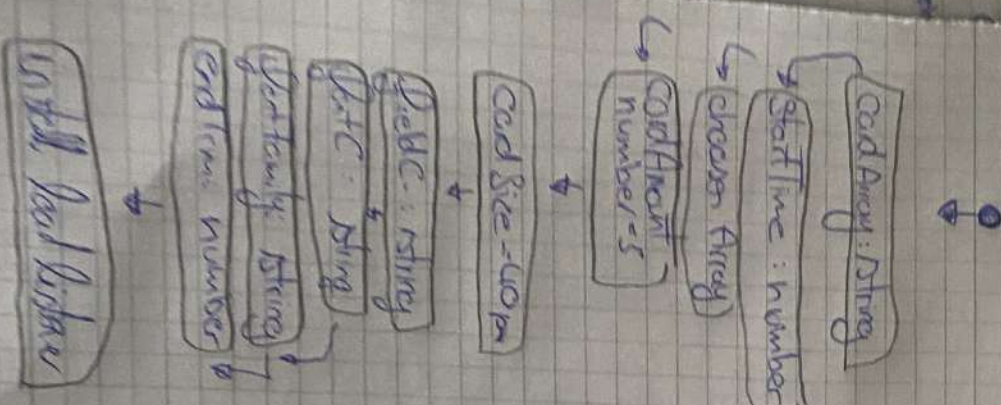 cardArray: string
startTime: number
choosen Array
cardAmount
number=5
cardSize=40px
fieldC: string
fontC: string
fontFamily: string
endTime: number
install load listener